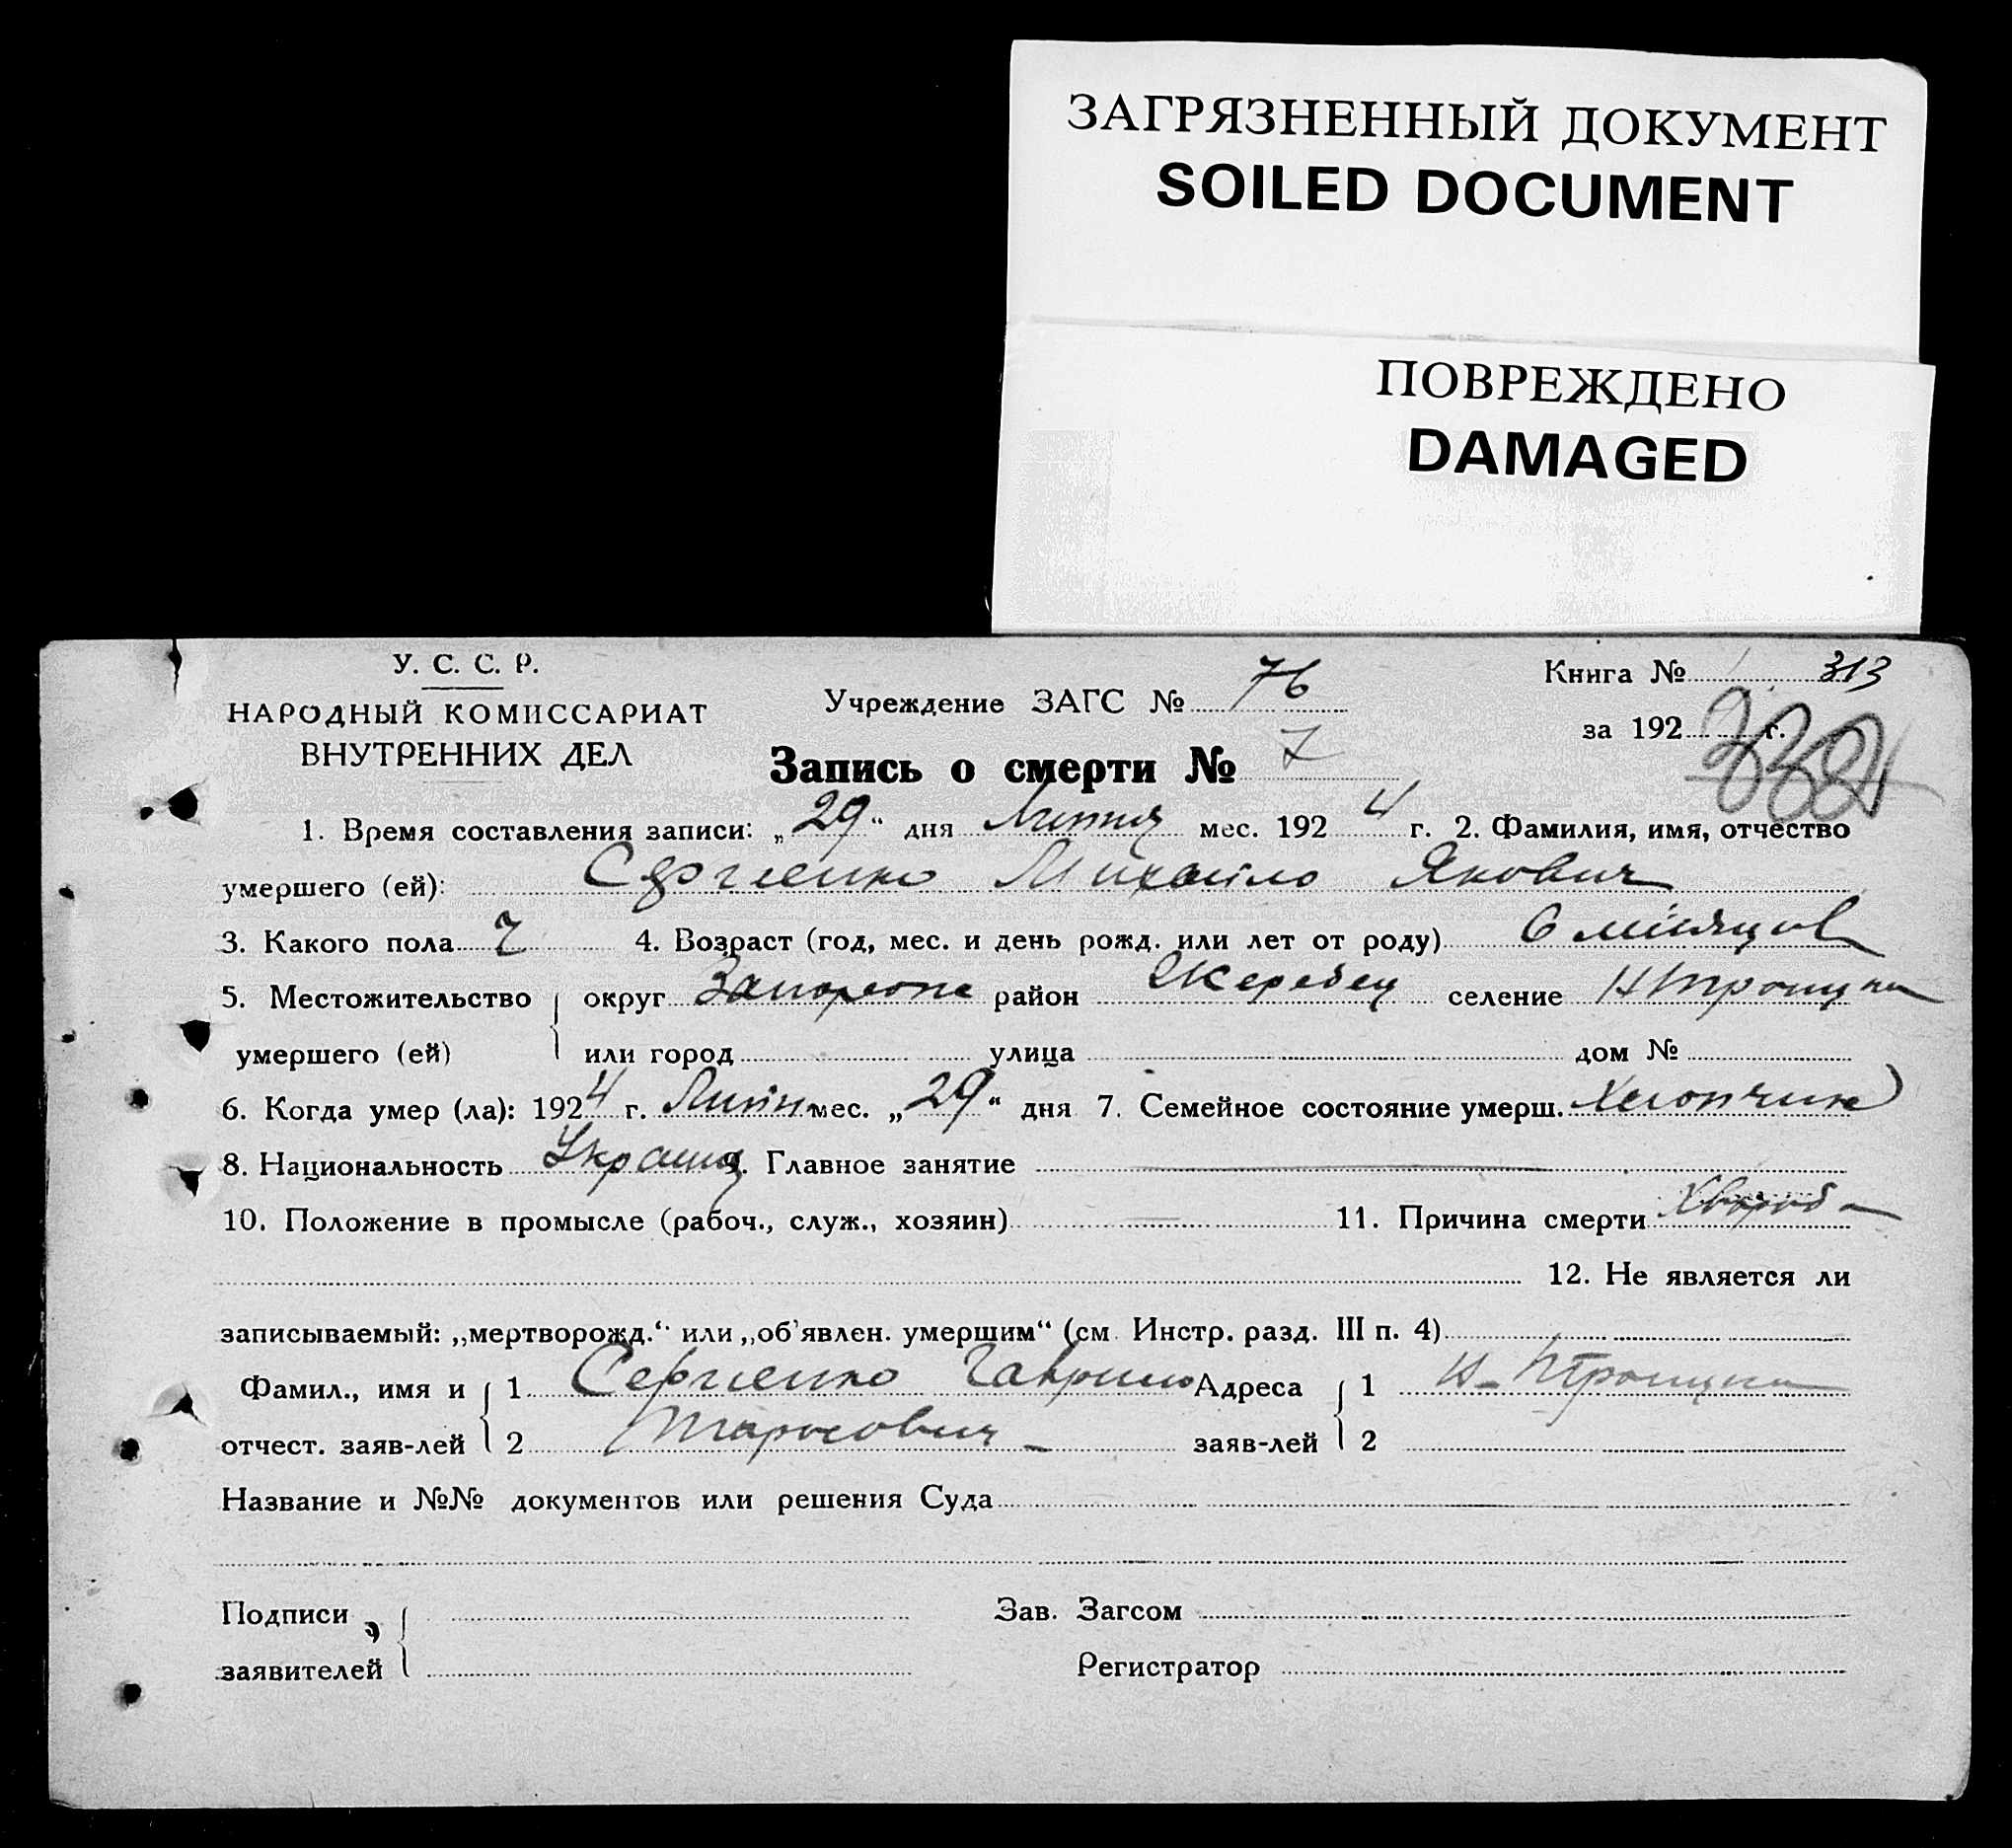 ЗАГРЯЗНЕННЫЙ ДОКУМЕНТ
SOILED DOCUMENT
ПОВРЕЖДЕНО
DAMAGED
У. С. С. Р.
НАРОДНЫЙ КОМИССАРИАТ
ВНУТРЕННИХ ДЕЛ
Учреждение ЗАГС № 76
Книга № 313
за 192 г.
Запись о смерти № 7
1. Время составления записи: „29“ дня Липня мес. 1924 г. 2. Фамилия, имя, отчество
умершего (ей): Сергиенко Михайло Якович
3. Какого пола Ч 4. Возраст (год, мес. и день рожд. или лет от роду) 6 місяцов
5. Местожительство округ район Жеребец селение
умершего (ей) или город улица дом №
6. Когда умер (ла): 1924 г. мес. „29“ дня 7. Семейное состояние умерш. Хлопчик
8. Национальность 9. Главное занятие
10. Положение в промысле (рабоч., служ., хозяин) 11. Причина смерти Хвороба
12. Не является ли
записываемый: „мертворожд.“ или „об'явлен. умершим“ (см. Инстр. разд. III п. 4)
Фамил., имя и 1 Сергиенко Гаврило Адреса 1
отчест. заяв-лей 2 Тарасович заяв-лей 2
Название и №№ документов или решения Суда
Подписи Зав. Загсом
заявителей Регистратор